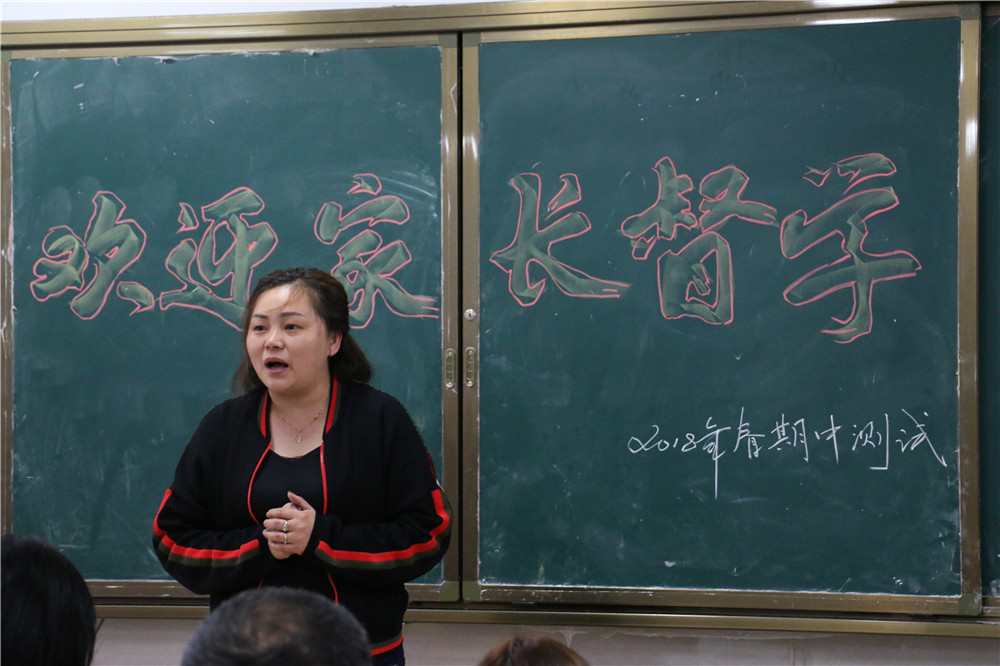 欢迎家长督学
2018年春期中测试